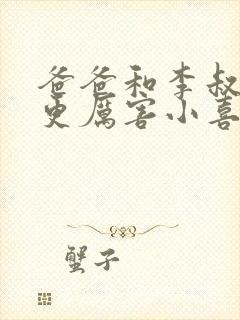 爸爸和李叔
更厉害小喜
蟹子